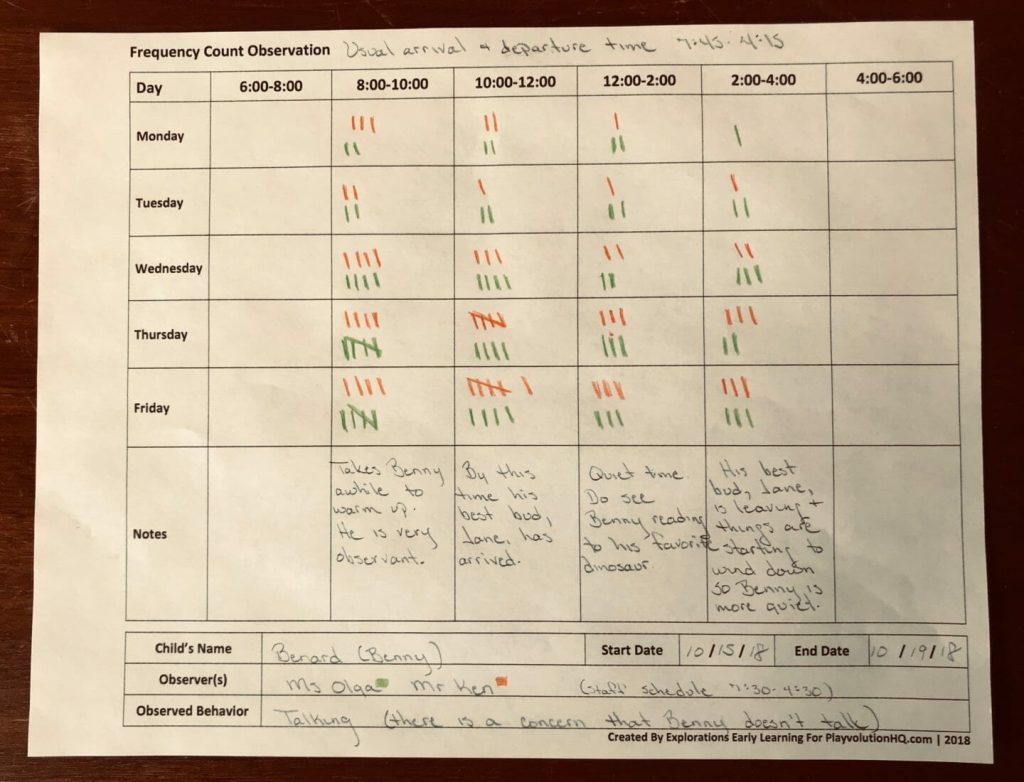 Frequency Count Observation Usual arrival & departure time 7:45-4:15
Day 6:00-8:00 8:00-10:00 10:00-12:00 12:00-2:00 2:00-4:00 4:00-6:00
Monday
Tuesday
Wednesday
Thursday
Friday
Notes
Takes Benny
awhile to
warm up.
He is very
observant.
By this
time his
best bud,
Jane, has
arrived.
Quiet time.
Do see
Benny reading
to his favorite
dinosaur
His best
bud, Jane,
is leaving +
things are
starting to
wind down
so Benny is
more quiet.
Child's Name Benard (Benny) Start Date 10/15/18 End Date 10/19/18
Observer(s) Ms Olga Mr Ken (Staff schedule 7:30-4:30)
Observed Behavior Talking (there is a concern that Benny doesn't talk)
Created By Explorations Early Learning For PlayvolutionHQ.com | 2018